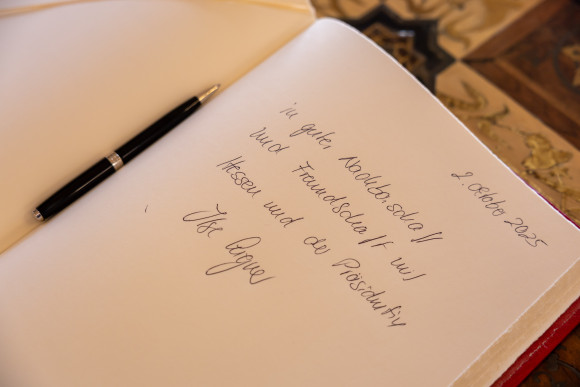 2. Oktober 2025
in guter Nachbarschaft
und Freundschaft mit
Hessen und der Präsidentin
Ilse Aigner